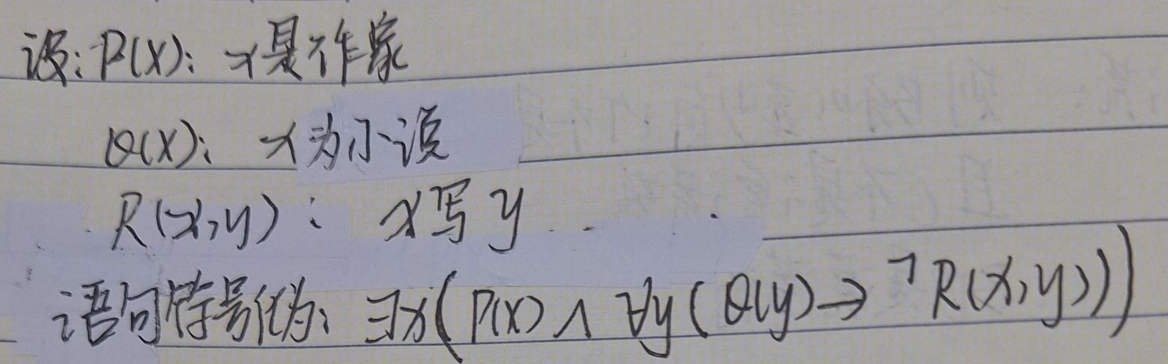 设: P(x): x是作家
Q(x): x为小说
R(x,y): x写y
语句符号化为: ∃x(P(x)∧∀y(Q(y)→¬R(x,y)))